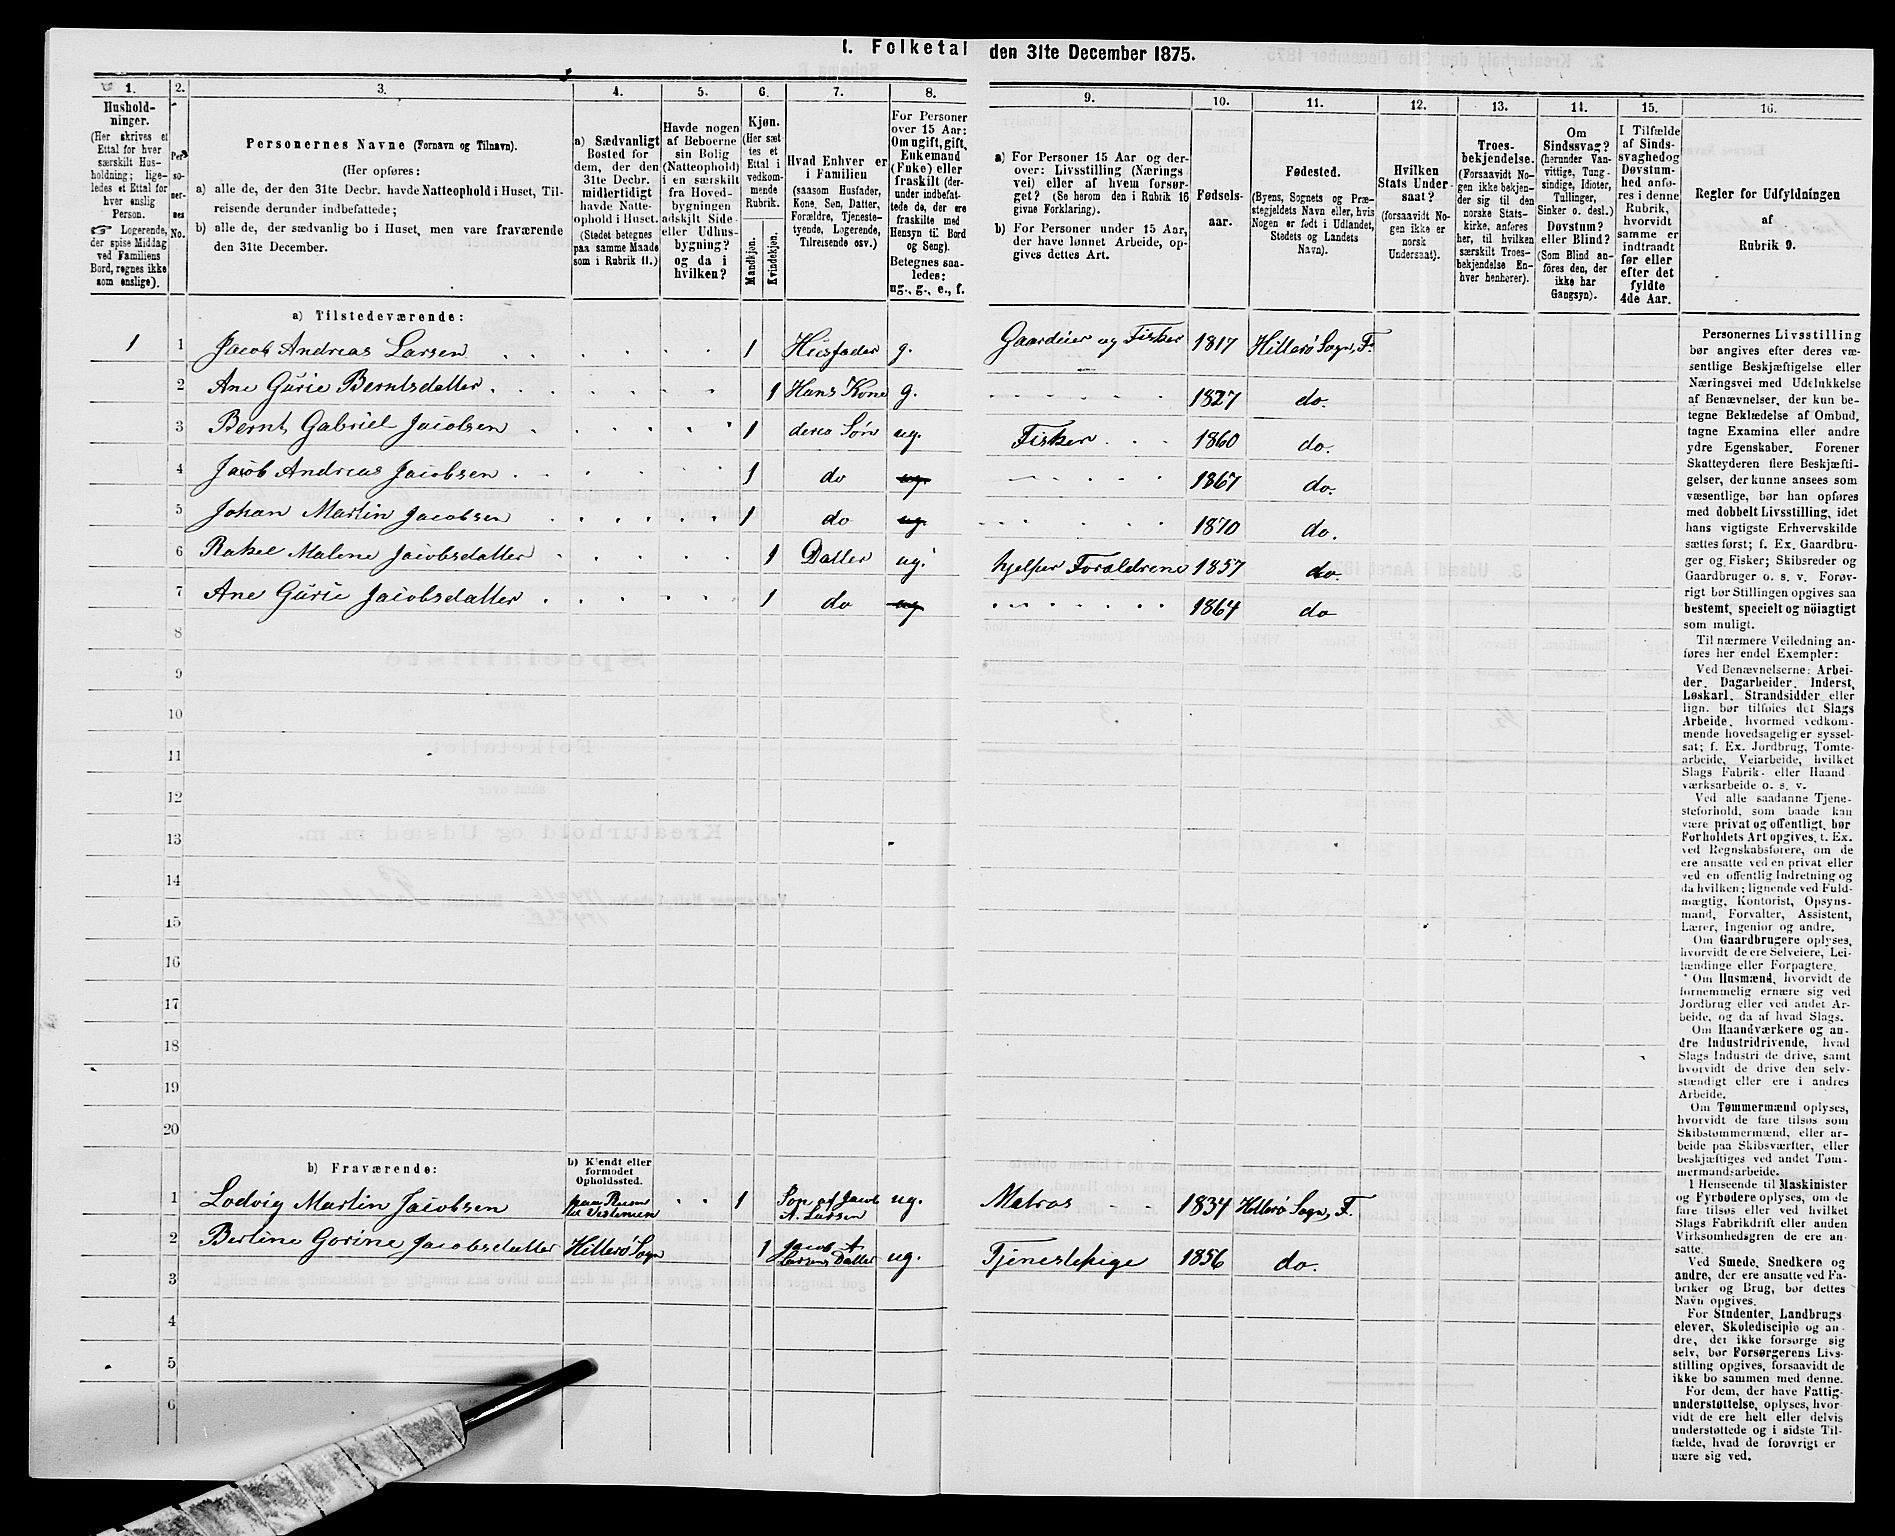 1. Folketal den 31te December 1875.
1.
Hushold-
ninger.
(Her skrives et
Ettal for hver
særskilt Hus-
holdning; lige-
ledes et Ettal for
hver enslig
Person.
Logerende,
der spise Middag
ved Familiens
Bord, regnes ikke
som enslige).
2.
Per-
so-
ner-
nes
No.
3.
Personernes Navne (Fornavn og Tilnavn).
(Her opføres:
a) alle de, der den 31te Decbr. havde Natteophold i Huset, Til-
reisende derunder indbefattede;
b) alle de, der sædvanlig bo i Huset, men vare fraværende
den 31te December.
4.
a) Sædvanligt
Bosted for
dem, der den
31te Decbr.
midlertidigt
havde Natte-
ophold i Huset.
(Stedet betegnes
paa samme Maade
som i Rubrik 11.)
5.
Havde nogen
af Beboerne
sin Bolig
(Natteophold)
i en særskilt
fra Hoved-
bygningen
adskilt Side-
eller Udhus-
bygning?
og da i
hvilken?
6.
Kjøn.
(Her sæt-
tes et
Ettal i
vedkom-
mende
Rubrik.
Mandkjøn.
Kvindekjøn.
7.
Hvad Enhver er
i Familien
(saasom Husfader,
Kone, Søn, Datter,
Forældre, Tjeneste-
tyende, Logerende,
Tilreisende osv.)
8.
For Personer
over 15 Aar:
Om ugift, gift,
Enkemand
(Enke) eller
fraskilt (der-
under indbefat-
tede de, der ere
fraskilte med
Hensyn til Bord
og Seng).
Betegnes saa-
ledes:
ug., g., e., f.
9.
a) For Personer 15 Aar og der-
over: Livsstilling (Nærings-
vei) eller af hvem forsør-
get? (Se herom den i Rubrik 16
givne Forklaring).
b) For Personer under 15 Aar,
der have lønnet Arbeide, op-
gives dettes Art.
10.
Fødsels-
aar.
11.
Fødested.
(Byens, Sognets og Præ-
stegjeldets Navn eller, hvis
Nogen er født i Udlandet,
Stedets og Landets
Navn).
12.
Hvilken
Stats Under-
saat?
(forsaavidt No-
gen ikke er
norsk
Undersaat).
13.
Troes-
bekjendelse.
(Forsaavidt No-
gen ikke bekjen-
der sig til den
norske Stats-
kirke, anføres
her, til hvilken
særskilt Troes-
bekjendelse En-
hver henhører).
14.
Om
Sindssvag?
(herunder Van-
vittige, Tung-
sindige, Idioter,
Tullinger,
Sinker o. desl.)
Døvstum?
eller Blind?
(Som Blind an-
føres den, der
ikke har
Gangsyn).
15.
I Tilfælde
af Sinds-
svaghed og
Døvstum-
hed anfø-
res i denne
Rubrik,
hvorvidt
samme er
indtraadt
før eller
efter det
fyldte
4de Aar.
16.
Regler for Udfyldningen
af
Rubrik 9.
a) Tilstedeværende:
1 1 Jacob Andreas Larsen 1 Husfader g. Gaardeier og Fisker 1817 Hitterö Sogn, F.
2 Ane Gurie Berntsdatter 1 Hans Kone g. 1827 do.
3 Bernt Gabriel Jacobsen 1 deres Søn ug. Fisker 1860 do.
4 Jacob Andreas Jacobsen 1 do ug. 1867 do.
5 Johan Martin Jacobsen 1 do ug. 1870 do.
6 Rakel Malene Jacobsdatter 1 Datter ug. hjelper Forældrene 1857 do.
7 Ane Gurie Jacobsdatter 1 do ug 1864 do
8
9
10
11
12
13
14
15
16
17
18
19
20
b) Fraværende:
b) Kjendt eller
formodet
Opholdssted.
1 Lodvig Martin Jacobsen 1 Søn af Jacob A. Larsen ug. Matros 1834 Hitterö Sogn, F.
2 Bertine Gorine Jacobsdatter Hitterö Sogn 1 Jacob A Larsens Datter ug. Tjenestepige 1856 do.
3
4
5
6
Personernes Livsstilling
bør angives efter deres væ-
sentlige Beskjæftigelse eller
Næringsvei med Udelukkelse
af Benævnelser, der kun be-
tegne Beklædelse af Ombud,
tagne Examina eller andre
ydre Egenskaber. Forener
Skatteyderen flere Beskjæfti-
gelser, der kunne ansees som
væsentlige, bør han opføres
med dobbelt Livsstilling, idet
hans vigtigste Erhvervskilde
sættes først; f. Ex. Gaardbru-
ger og Fisker; Skibsreder og
Gaardbruger o. s. v. Forøv-
rigt bør Stillingen opgives saa
bestemt, specielt og nöiagtigt
som muligt.
Til nærmere Veiledning an-
føres her endel Exempler:
Ved Benævnelserne: Arbei-
der, Dagarbeider, Inderst,
Løskarl, Strandsidder eller
lign. bør tilføies det Slags
Arbeide, hvormed vedkom-
mende hovedsagelig er syssel-
sat; f. Ex. Jordbrug, Tomte-
arbeide, Veiarbeide, hvilket
Slags Fabrik- eller Haand-
værksarbeide o. s. v.
Ved alle saadanne Tjene-
steforhold, som baade kan
være privat og offentligt, bør
Forholdets Art opgives, t. Ex.
ved Regnskabsførere, om de
ere ansatte ved en privat eller
ved en offentlig Indretning og
da hvilken; lignende ved Fuld-
mægtig, Kontorist, Opsyns-
mand, Forvalter, Assistent,
Lærer, Ingeniør og andre.
Om Gaardbrugere oplyses,
hvorvidt de ere Selveiere, Lei-
lændinge eller Forpagtere.
Om Husmænd, hvorvidt de
fornemmelig ernære sig ved
Jordbrug eller ved andet Ar-
beide, og da af hvad Slags.
Om Haandværkere og an-
dre Industridrivende, hvad
Slags Industri de drive, samt
hvorvidt de drive den selv-
stændigt eller ere i andres
Arbeide.
Om Tømmermænd oplyses,
hvorvidt de fare tilsøs som
Skibstømmermænd, eller ar-
beide paa Skibsværfter, eller
beskjæftiges ved andet Tøm-
mermandsarbeide.
I Henseende til Maskinister
og Fyrbødere oplyses, om de
fare tilsøs eller ved hvilket
Slags Fabrikdrift eller anden
Virksomhedsgren de ere an-
satte.
Ved Smede, Snedkere og
andre, der ere ansatte ved Fa-
briker og Brug, bør dettes
Navn opgives.
For Studenter, Landbrugs-
elever, Skoledisciple og an-
dre, der ikke forsørge sig
selv, bør Forsørgerens Livs-
stilling opgives, forsaavidt de
ikke bo sammen med denne.
For dem, der have Fattig-
understøttelse, oplyses, hvor-
vidt de ere helt eller delvis
understøttede og i sidste Til-
fælde, hvad de forøvrigt er
nære sig ved.